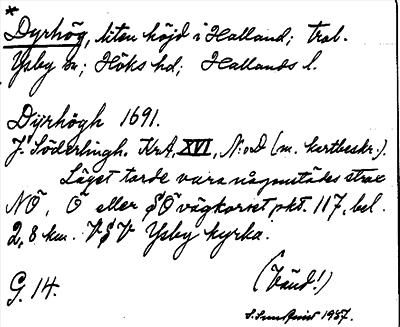 *
Dyrhög, liten höjd i Halland; trol.
Ysby sn; Höks hd; Hallands l.
Dÿrhögh 1691.
J. Söderlingh. KrA, XVI, N:o D (m. kartbeskr.).
Läget torde vara någonstädes strax
NÖ, Ö eller SÖ vägkorset pkt. 117, bel.
2,8 km. VSV Ysby kyrka.
G. 14.
(Vänd!)
S. Sundqvist 1937.